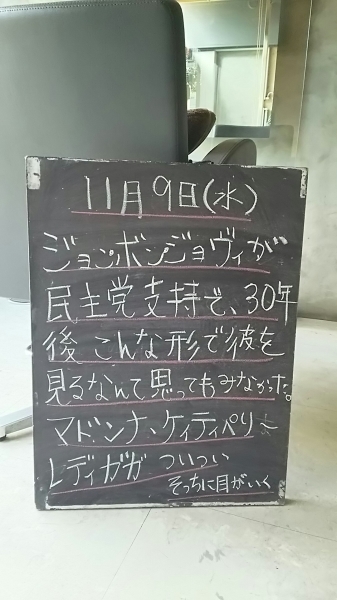 11月9日(水)
ジョン・ボンジョヴィが
民主党支持で、30年
後 こんな形で彼を
見るなんて思ってもみなかった。
マドンナ、ケィティペリと
レディガガ ついつい
そっちに目がいく